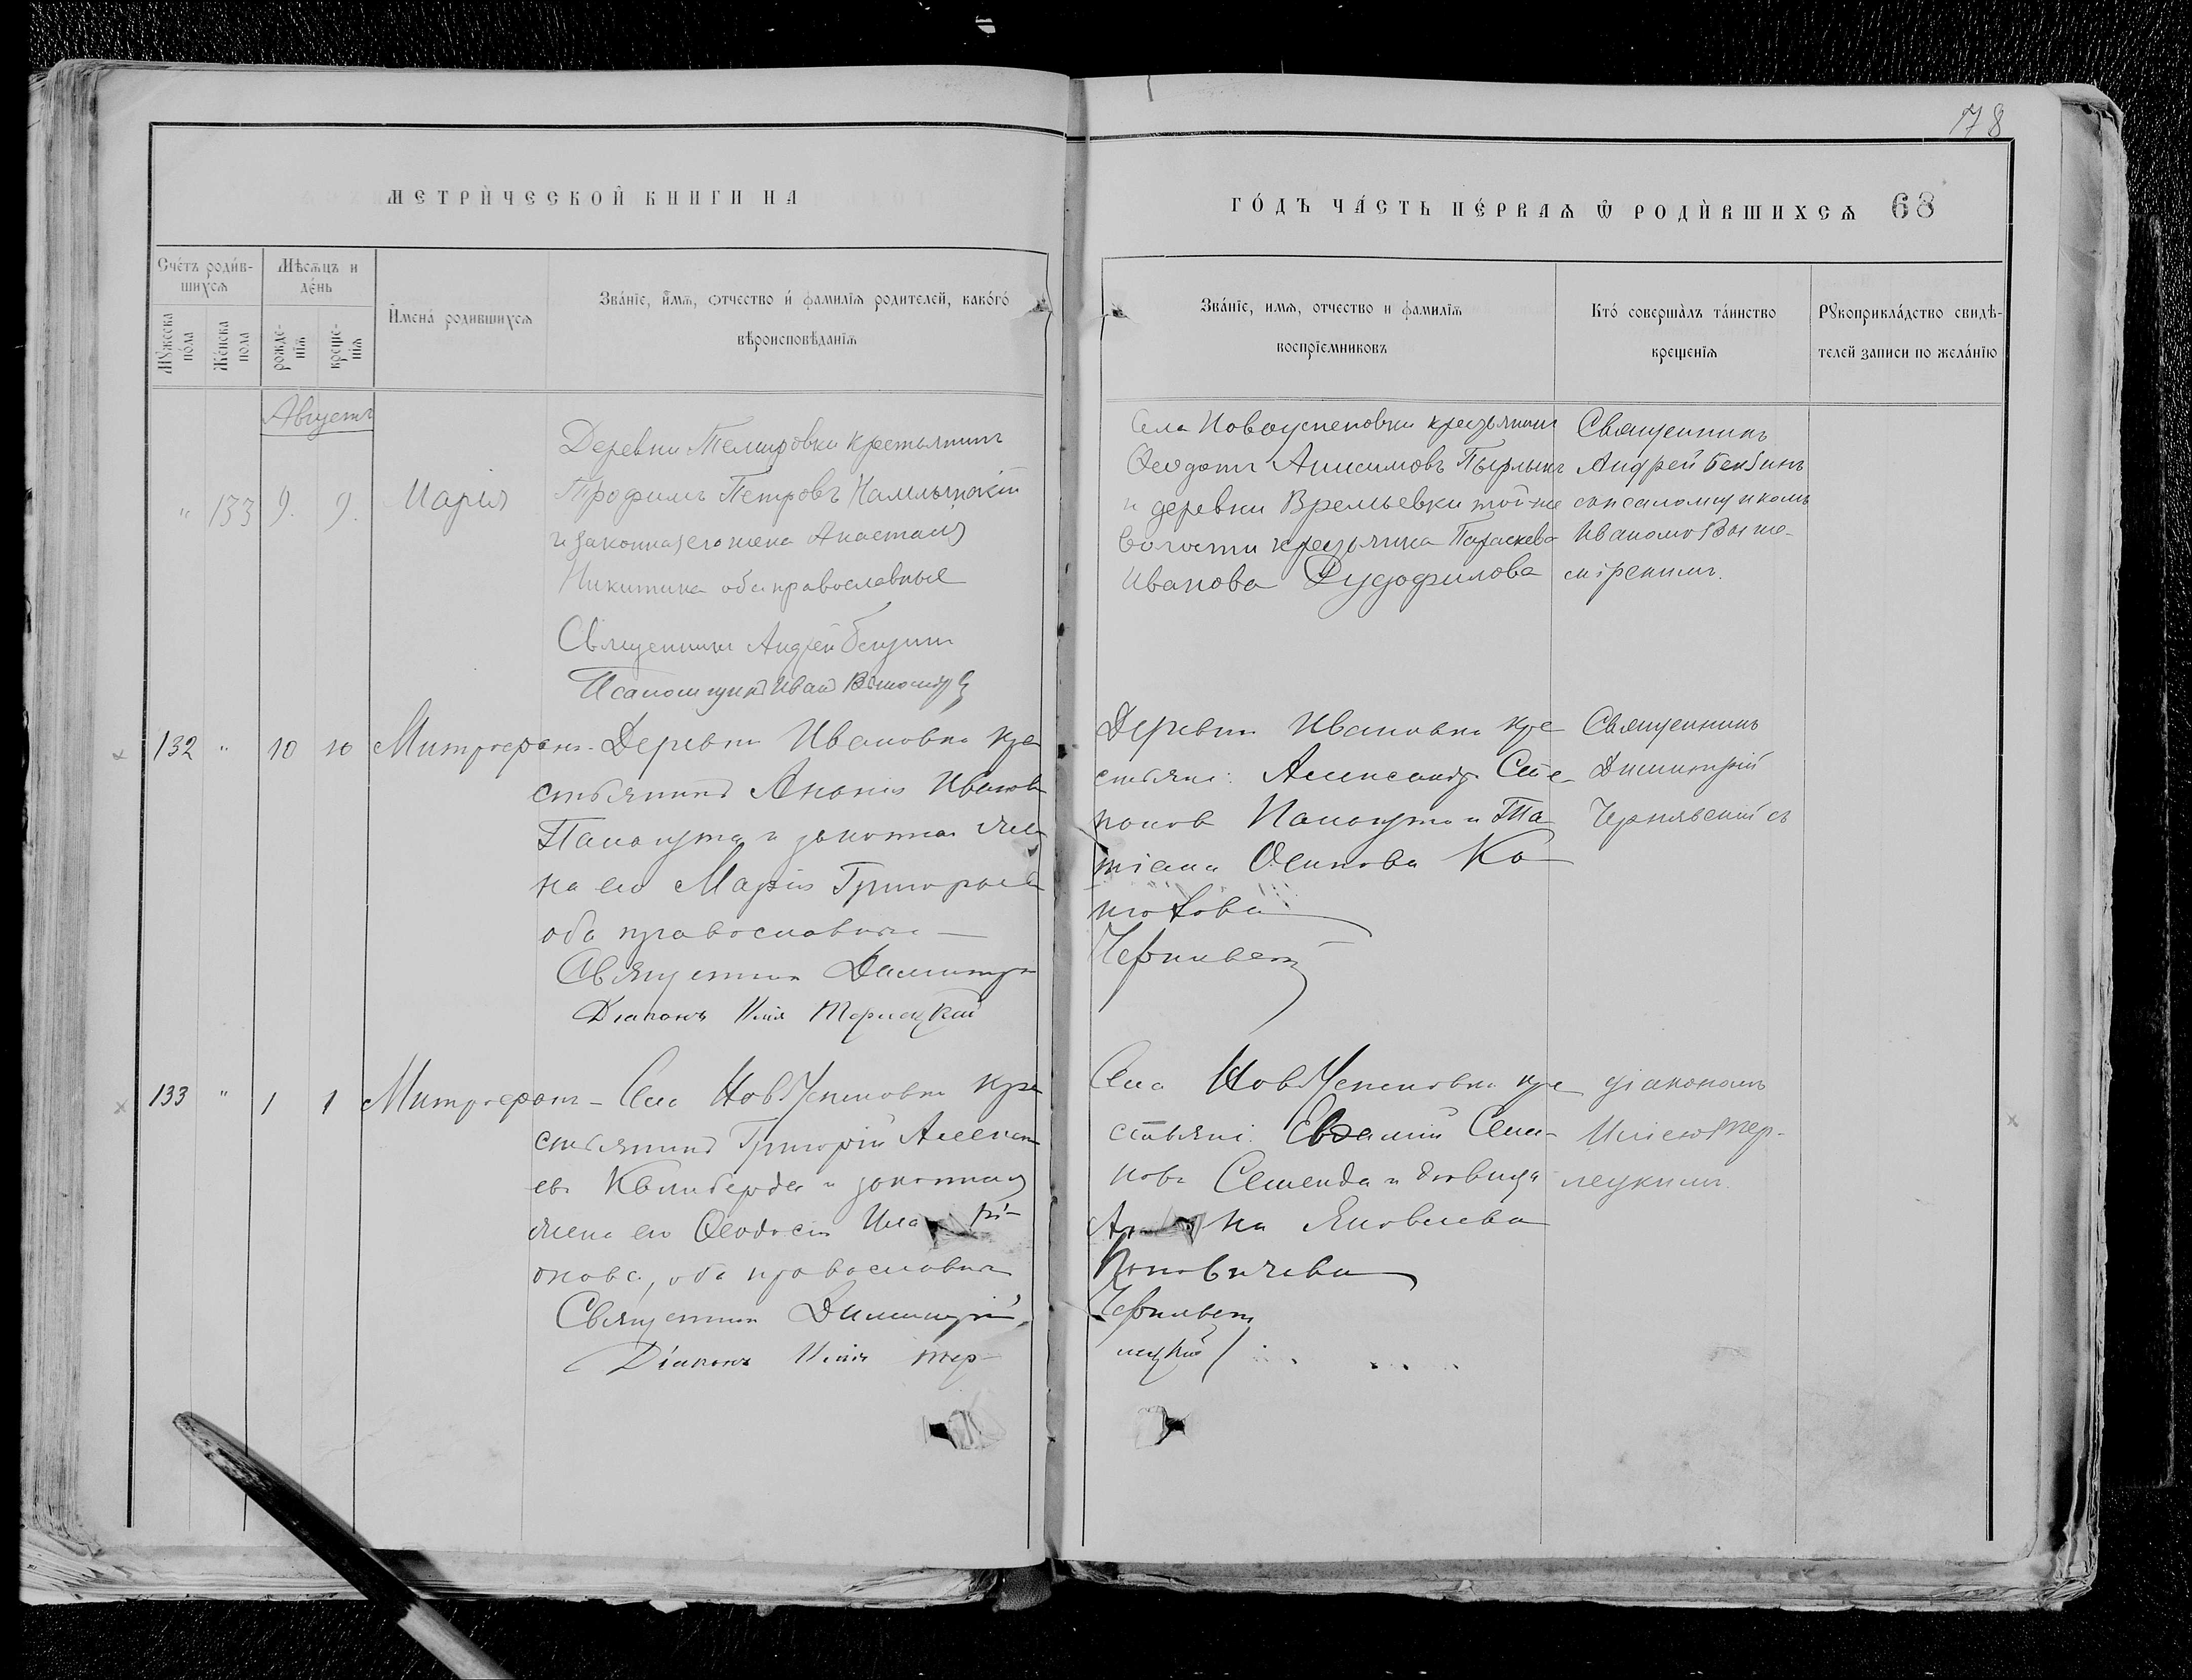 78
МЕТРИ́ЧЕСКОЙ КНИГИ НА
ГО́ДЪ ЧА́СТЬ ПЕ́РВАѦ Ѡ҃ РОДИ́ВШИХСѦ 68
Сче́тъ роди́в-
шихсѧ
Мѣсѧцъ и
де́нь
Мꙋжеска
по́ла
Же́нска
пола
рожде-
нїѧ
креще-
нїѧ
И҆мена́ родившихсѧ
Зва́нїе, и҆́мѧ, ѻтчество и҆ фамилїѧ родителей, како́гѡ
вѣроисповѣданїѧ
Зва́нїе, имѧ, отчество и фамилїѧ
воспрїемниковъ
Кто́ соверша́лъ та́инство
крещенїѧ
Рꙋкоприкла́дство свидѣ-
телей записи по жела́нїю
Августъ
" 133 9. 9. Марія
Деревни Темировки крестьянинъ
Трофимъ Петровъ
и законная его жена Анастасія
Никитина оба православные
Священникъ Андрей
Псаломщикъ Иванъ
Села Новоуспеновки крестьянинъ
Ѳеодотъ Анисимовъ
и деревни Времьевки той же
волости крестьянка Параскева
Иванова
Священникъ
Андрей
съ псаломщикомъ
Иваномъ Выше-
мірскимъ.
132 " 10 10 Митрофанъ
Деревни Ивановки кре
стьянинъ Ананія Иванов
и законная же
на его Марія Григорьева
оба православные
Священникъ Димитрій
Діаконъ Илія Терлецкій
Деревни Ивановки кре
стьяне: Александръ Сте-
панов и Та
тіана Осипова Ко
Чернявскій
Священникъ
Димитрій
Чернявскій съ
133 " 1 1 Митрофанъ
Села НовоУспеновки кре
стьянинъ Григорій Алексе
евъ и законная
жена его Ѳеодосія Ила рі-
онова, оба православные
Священникъ Димитрій
Діаконъ Илія Тер-
Села НовоУспеновки кре
стьяне: Евгеній Семе-
новъ и девица
на Яковлева
Чернявскій
лецкій
діакономъ
Иліею Тер-
лецкимъ.